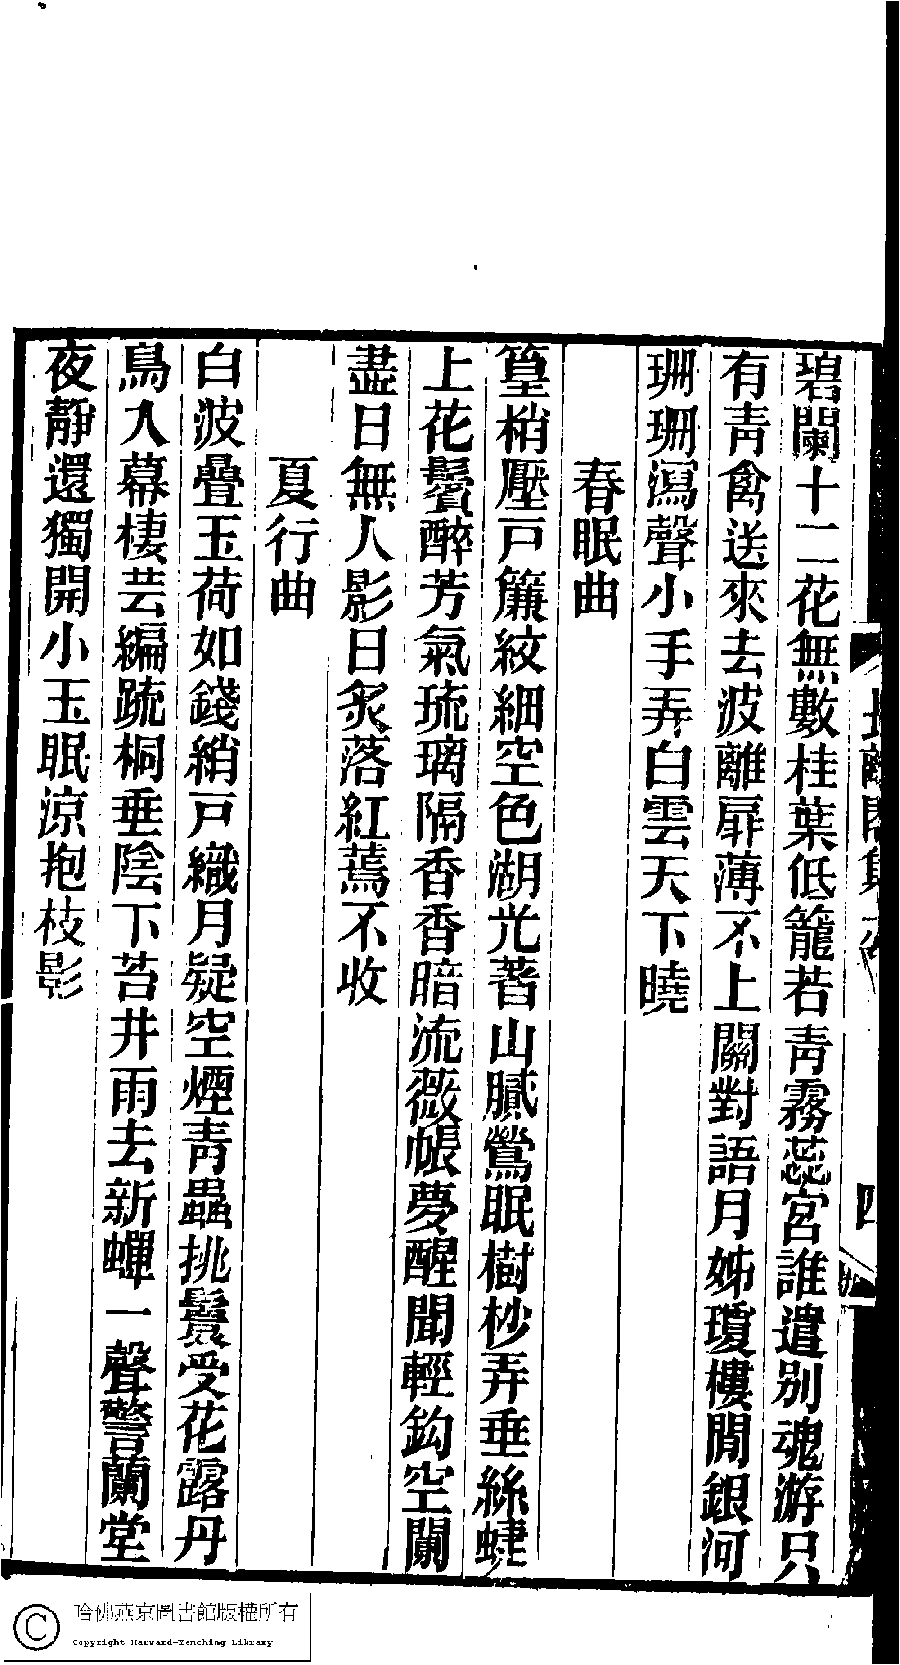 碧闌十二花無數桂葉低籠若青霧蕊宮誰遣別魂游只
有青禽送來去波離扉薄不上關對語月姊瓊樓閒銀河
珊珊瀉聲小手弄白雲天下曉
春眠曲
篁梢壓戸簾紋細空色湖光著山膩鶯眠樹杪弄垂絲蜨
上花鬢醉芳氣琉璃隔香香暗流薇帳夢醒聞輕鈎空闌
盡日無人影日炙落紅蔫不收
夏行曲
白波疊玉荷如錢綃戸織月疑空煙青蟲挑鬟受花露丹
鳥入幕棲芸編疏桐垂陰下苔井雨去新蟬一聲警蘭堂
夜靜還獨開小玉眠涼抱枝影
長離閣集
四
哈佛燕京圖書館版權所有
Copyright Harvard-Yenching Library